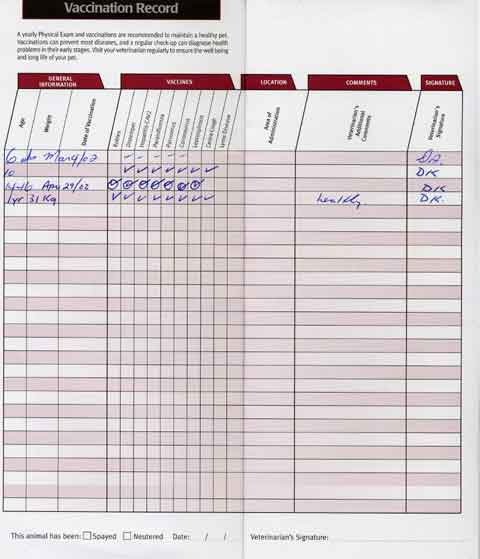 Vaccination Record
A yearly Physical Exam and vaccinations are recommended to maintain a healthy pet.
Vaccinations can prevent most diseases, and a regular check-up can diagnose health
problems in their early stages. Visit your veterinarian regularly to ensure the well being
and long life of your pet.
GENERAL INFORMATION VACCINES LOCATION COMMENTS SIGNATURE
Age Weight Date of Vaccination Rabies Distemper Hepatitis-CAV2 Parainfluenza Parvovirus Coronavirus Leptospirosis Lyme Disease Area of Administration Veterinarian's Additional Comments Veterinarian's Signature
6 Mar 9/02
10 DK
Apr 29/02 DK
1yr 31 Kg healthy DK.
This animal has been: Spayed Neutered Date: / / Veterinarian's Signature: